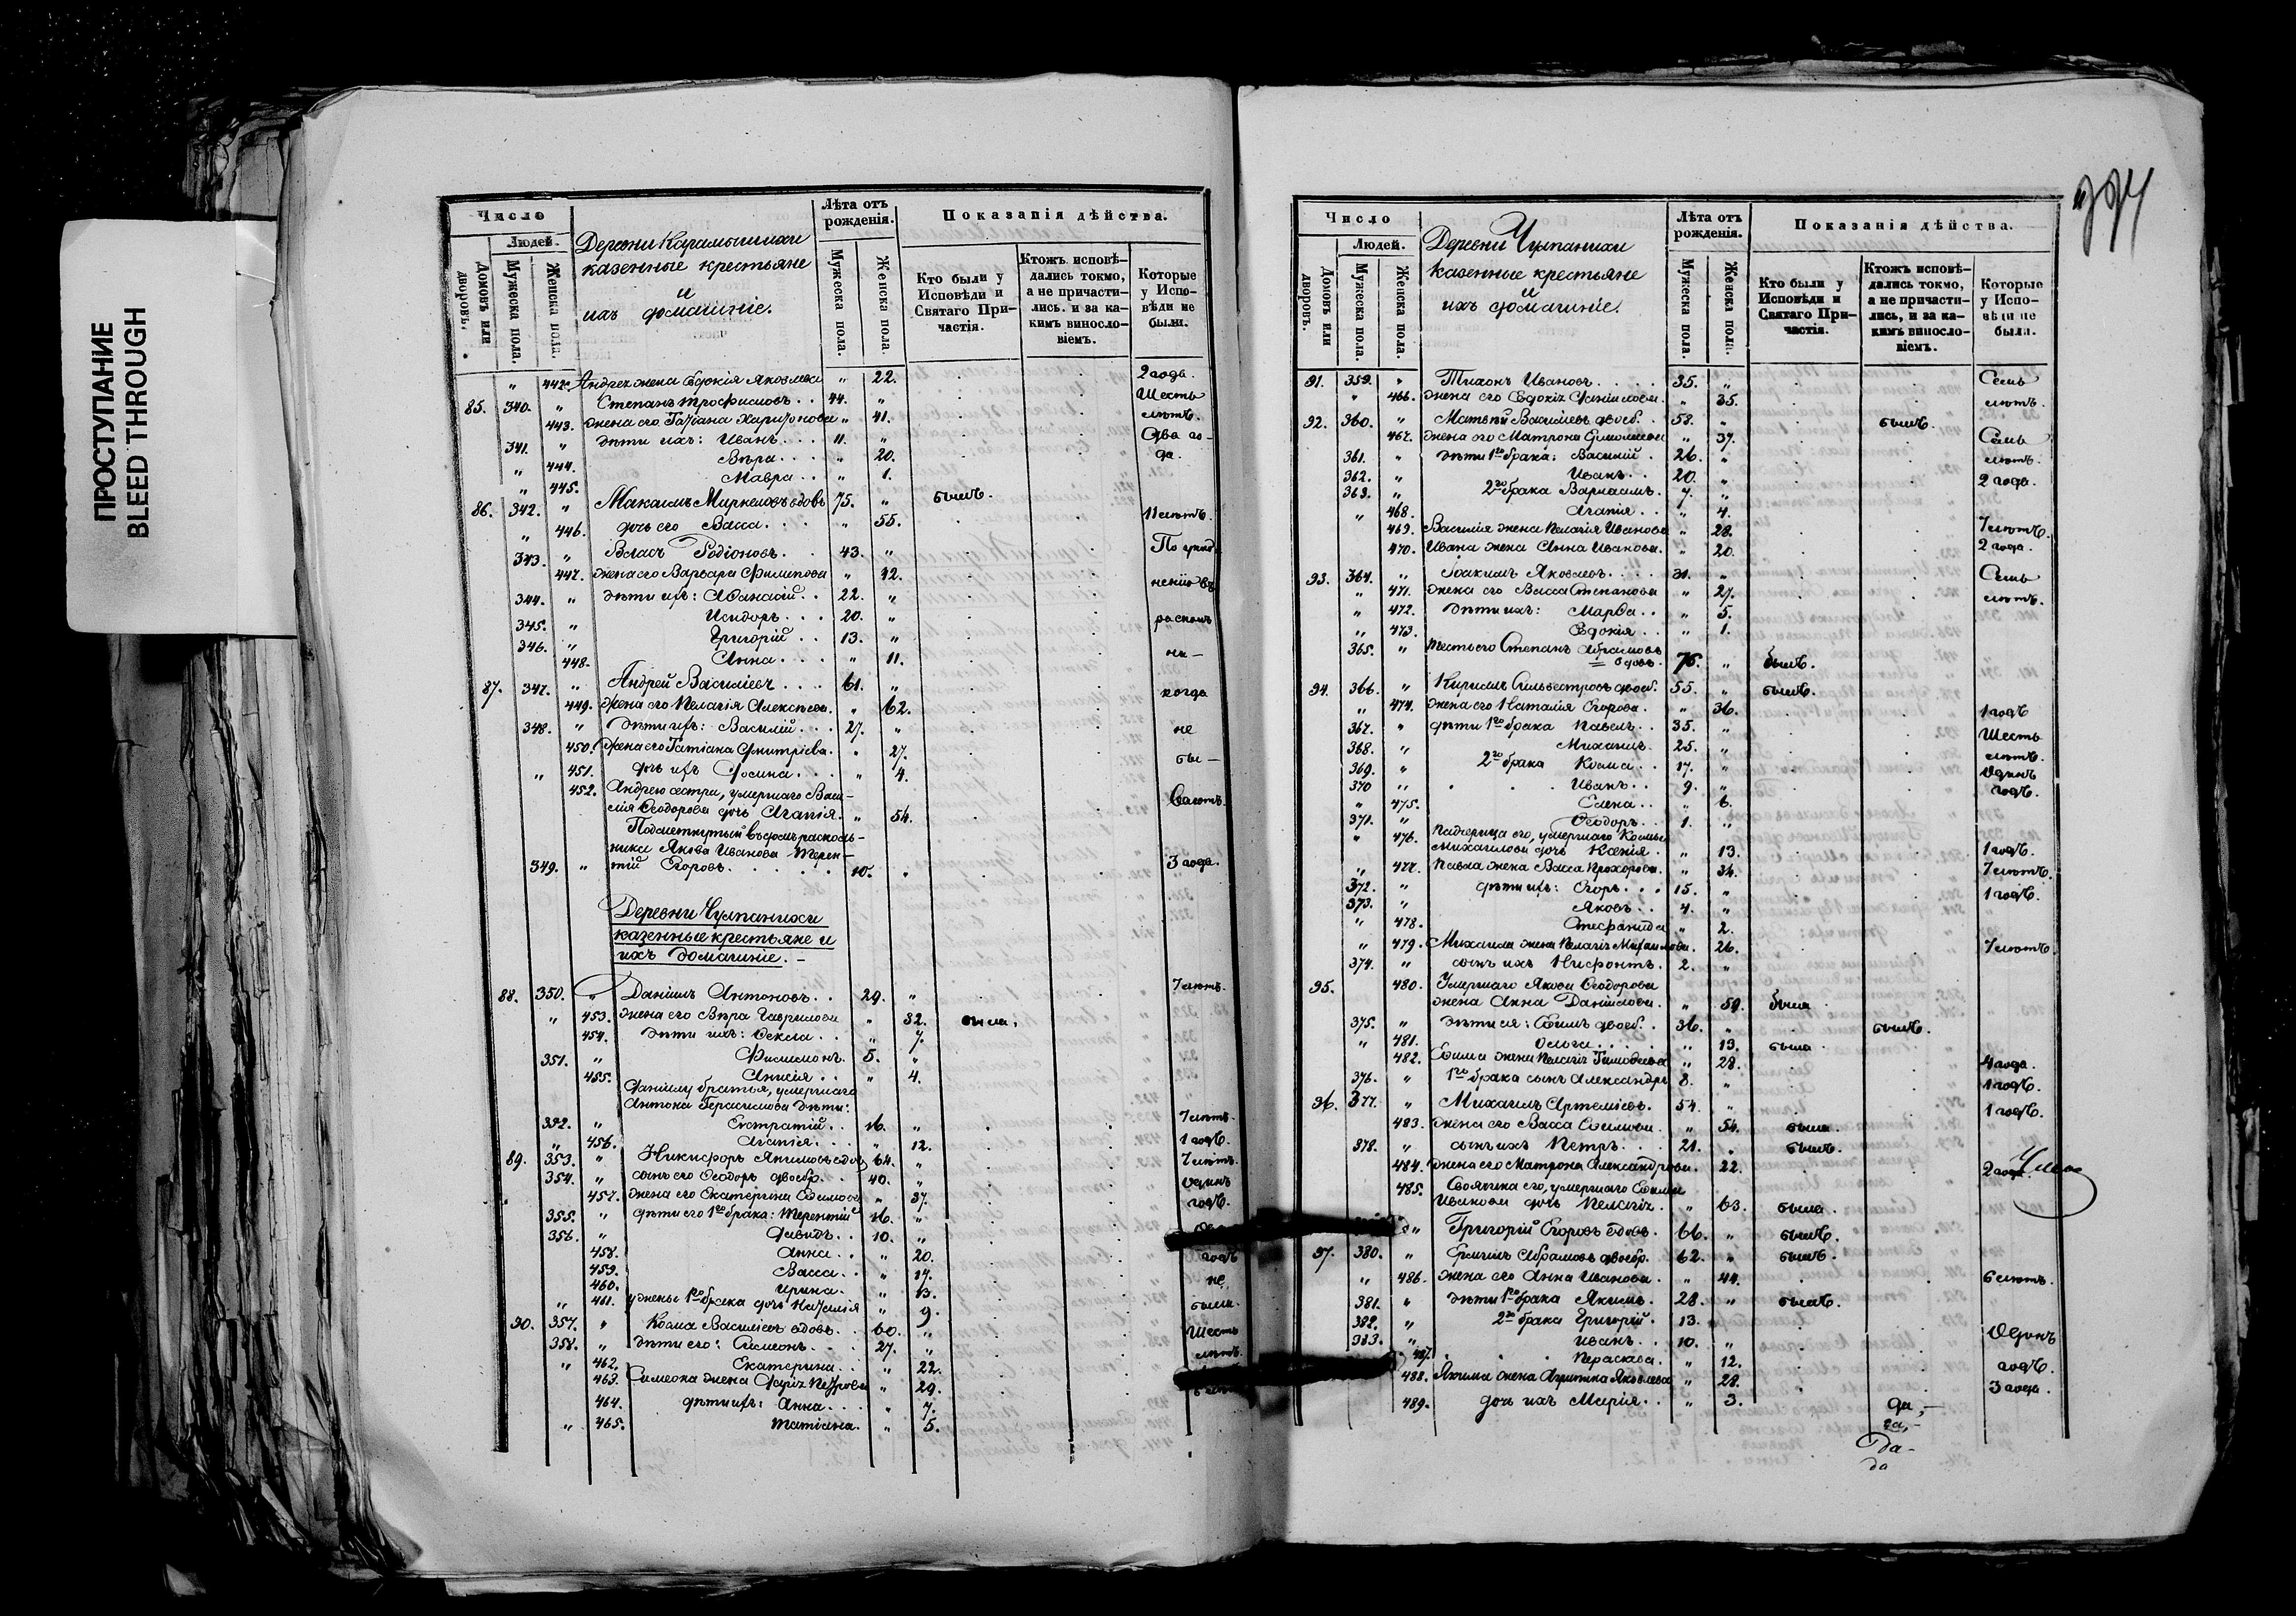 ПРОСТУПАНИЕ
BLEED THROUGH
Число
Людей.
Домовъ или дворовъ.
Мужеска пола.
Женска пола.
Деревни Карамышихи
казенные крестьяне
и
ихъ домашніе.
Лѣта отъ рожденія.
Мужеска пола.
Женска пола.
Показанія дѣйства.
Кто были у Исповѣди и Святаго Причастія.
Ктожъ исповѣдались токмо, а не причастились, и за какимъ винословіемъ.
Которые у Исповѣди не были.
" 442. Андрея жена Евдокія Яковлева " 22. 2 года.
85. 340. " Степанъ Трофимовъ . . 44. " Шесть
443. жена его Татіана Харитонова " 41. лѣтъ.
341. " дѣти ихъ: Иванъ . . . 11. " Два го-
" 444. Вѣра . . . " 20. да.
" 445. Мавра . . " 1.
86. 342. " Максимъ Миркеловъ вдовъ 75. " былъ.
" 446. дочь его Васса . . . " 55. 11 лѣтъ.
343. " Власъ Родіоновъ . . 43. " По укло
447. жена его Варвара Филипова " 42. ненію въ
344. " дѣти ихъ: Аѳанасій . . 22. "
345. " Исидоръ . . . 20. " расколъ
346. " Григорій . . 13. "
448. Анна . . . " 11. ни-
87. 347. " Андрей Васильевъ . . . 61. " когда
449. жена его Пелагія Алексѣева. " 62.
348. " дѣти ихъ: Василій . . . 27. " не
450. жена его Татіана Дмитріева. " 27.
" 451. дочь ихъ Ѳосина . . . " 4. бы-
452. Андрею сестра, умершаго Васи-
лія Ѳеодорова дочь Агапія. " 54. лютъ.
Подметнутый въ домъ расколь-
ника Якова Иванова Терен-
349. " тій Егоровъ . . . . . 10. " 3 года.
Деревни Чулпанихи
казенные крестьяне и
ихъ домашніе. –
88. 350. " Даніилъ Антоновъ . . 29. " 7 лѣтъ.
" 453. жена его Вѣра Гаврилова " 32. была.
454. дѣти ихъ: Ѳекла . . " 7.
351. " Филимонъ. 5. "
455. Анисія . . " 4.
Даніилу братья, умершаго
Антона Герасимова дѣти:
352. " Евстратій . . 16. " 7 лѣтъ.
" 456. Агапія . . . " 12. 1 годъ.
89. 353. " Никифоръ Якимовъ вдов. 64. " 7 лѣтъ.
354. " сынъ его Ѳеодоръ двоебр. 40. " одинъ
457. жена его Екатерина Ефимова " 37. годъ.
355. " дѣти его 1го брака: Терентій 16. "
356. " Давидъ . . 10. "
458. Анна . . " 20. годъ
459. Васса . . " 14. не
460. Ирина . " 13.
" 461. у жены 1го брака дочь Наталія " 9. были.
90. 357. " Козма Васильевъ вдовъ. . 60. " Шесть
358. " дѣти его: Симеонъ . . 27. " лѣтъ.
" 462. Екатерина . . " 22.
463. Симеона жена Дарія Петрова " 29.
464. дѣти ихъ: Анна . . . " 7.
" 465. Татіана. " 5.
Число
Людей.
Домовъ или дворовъ.
Мужеска пола.
Женска пола.
Деревни Чулпанихи
казенные крестьяне
и
ихъ домашніе.
Лѣта отъ рожденія.
Мужеска пола.
Женска пола.
Показанія дѣйства.
Кто были у Исповѣди и Святаго Причастія.
Ктожъ исповѣдались токмо, а не причастились, и за какимъ винословіемъ.
Которые у Исповѣди не были.
91. 359. " Тихонъ Ивановъ . . . . 35. " Семь
" 466. жена его Евдокія Даніилова. " 35. лѣтъ.
92. 360. " Матвѣй Васильевъ двоеб. 58. " былъ.
467. жена его Матрона Ермолаева " 37. Семь
361. " дѣти 1го брака: Василій . 26. " лѣтъ.
362. " Иванъ . . 20. " 2 года.
363. " 2го брака Варлаамъ. 7. "
" 468. Агапія . . " 4.
469. Василія жена Пелагія Иванова " 28. 7 лѣтъ.
470. Ивана жена Анна Иванова. " 20. 2 года.
93. 364. " Іоакимъ Яковлевъ . . . 31. " Семь
" 471. жена его Васса Степанова " 27. лѣтъ.
" 472. дѣти ихъ: Марѳа . . " 5.
" 473. Евдокія . . " 1.
365. " Тесть его Степанъ Абрамовъ
вдовъ. 76. " былъ.
94. 366. " Кирилъ Сильвестровъ двоеб. 55. " былъ.
" 474. жена его Наталія Егорова. " 36. 1 годъ
367. " дѣти 1го брака Павелъ . . 35. " Шесть
368. " Михаилъ. 25. " лѣтъ.
369. " 2го брака Козма . . 17. " Одинъ
370 " Иванъ . . 9. " годъ.
" 475. Елена . . " 6.
371. " Ѳеодоръ . . 1. "
" 476. Падчерица его, умершаго Козмы
Михайлова дочь Ксенія . " 13. 1 годъ.
" 477. Павла жена Васса Прохорова. " 34. 7 лѣтъ.
372. " дѣти ихъ: Егоръ . . . 15. " 1 годъ.
373. " Яковъ . . 4. "
" 478. Стефанида " 2.
" 479. Михаила жена Пелагія Михайлова. 26. 7 лѣтъ.
374. " сынъ ихъ Нифонтъ. 2. "
95. 480. Умершаго Якова Ѳеодорова
жена Анна Даніилова. " 59. была
375. " дѣти ея: Ефимъ двоеб. . 36. " былъ.
" 481. Ольга . . . . " 13. была
482. Ефима жена Пелагія Тимоѳеева " 28. 4 года.
376. " 1го брака сынъ Александръ 8. " 1 годъ.
96. 377. " Михаилъ Артеміевъ. 54. " 1 годъ.
483. жена его Васса Ефимова. " 54. была.
378. " сынъ ихъ Петръ. . . 21. " былъ.
484. жена его Матрона Александрова. 22. 2 года.
485. Своячина его, умершаго Ефима
Иванова дочь Пелагія. " 63. была.
" Григорій Егоровъ вдовъ. 66. " былъ.
97. 380. " Абрамовъ двоебр. 62. " былъ.
" 486. жена его Анна Иванова. " 44. 6 лѣтъ.
381. " дѣти 1го брака Якимъ. 28. " былъ.
382. " 2го брака Григорій. 13.
383. " Иванъ . . 10. " Одинъ
487. Параскева. " 12. годъ.
488. Якима жена Агрипина Яковлева " 28. 3 года.
489. дочь ихъ Марія . . " 3.
да,-
да,-
Да-
да